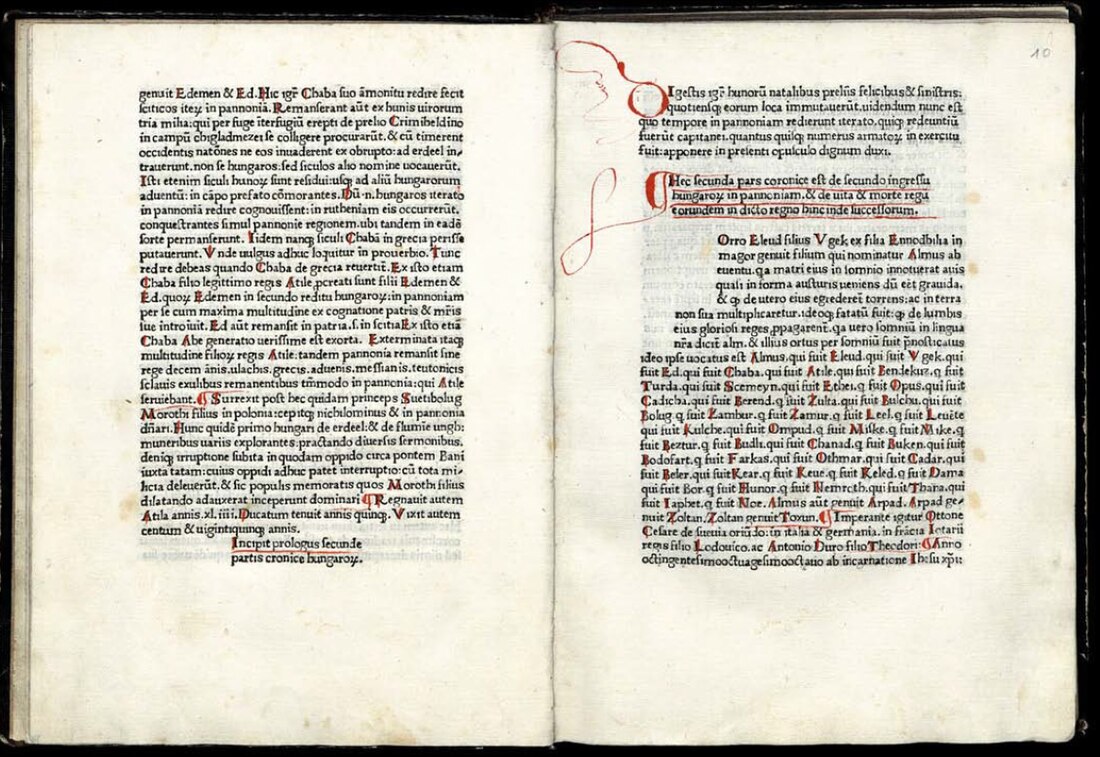 genuit Edemen & Ed. Hic igr̃ Chaba suo ãmonitu redire fecit
sciticos iteꝝ in pannonia. Remanserant aũt ex hunis uirorum
tria milia: qui per fuge ĩterfugiũ erepti de prelio Crimiheldino
in campũ chigladmezei se colligere procurarũt. & cũ timerent
occidentis natões ne eos inuaderent ex obrupto: ad erdeel in⸗
trauerunt. non se hungaros: sed siculos alio nomine uocauerũt.
Isti etenim siculi hunoꝝ sunt residui: usqꝫ ad aliũ hungarorum
aduentũ: in cãpo prefato cõmorantes. Dũ. n. hungaros iterato
in pannoniã redire cognouissent: in rutheniam eis occurrerũt.
conquestrantes simul pannonie regionem. ubi tandem in eadẽ
sorte permanserunt. Iidem nanqꝫ siculi Chabã in grecia perisse
putauerunt. Vnde uulgus adhuc loquitur in prouerbio. Tunc
redire debeas quando Chaba de grecia reuertit̃. Ex isto etiam
Chaba filio legittimo regis Atile, pcreati sunt filii Edemen &
Ed. quoꝝ Edemen in secundo reditu hungaroꝝ: in pannoniam
per se cum maxima multitudine ex cognatione patris & mr̃is
sue introiuit. Ed aũt remansit in patria. s. in scitia Ex isto etiã
Chaba Abe generatio uerissime est exorta. Exterminata itaqꝫ
multitudine filioꝝ regis Atile: tandem pannonia remansit sine
rege decem ãnis. ulachis, grecis, aduenis, messianis, teutonicis
sclauis exulibus remanentibus tm̃modo in pannonia: qui Atile
seruiebant. ¶ Surrexit post hec quidam princeps Suetibolug
Morothi filius in polonia: cepitqꝫ nichilominus & in pannonia
dñari. Hunc quidẽ primo hungari de erdeel: & de flumie ungh:
muneribus uariis explorantes: practando diuersis sermonibus.
deniqꝫ irruptione subita in quodam oppido circa pontem Bani
iuxta tatam: cuius oppidi adhuc patet interruptio: cũ tota mi⸗
licia deleuerũt. & sic populis memoratis quos Morothi filius
dilatando adauxerat inceperunt dominari ¶ Regnauit autem
Atila annis. xl. iiii. Ducatum tenuit annis quinqꝫ. Vixit autem
centum & uigintiquinqꝫ annis.
Incipit prologus secunde
partis cronice hungaroꝝ.
10
DIgestis igr̃ hunorũ natalibus preliis felicibus & sinistris:
quotiensqꝫ eorum loca immutauerũt. uidendum nunc est
quo tempore in pannoniam redierunt iterato. quiqꝫ redeuntiũ
fuerũt capitanei. quantus quilqꝫ numerus armatoꝝ in exercitu
fuit: apponere in presenti opusculo dignum duxi.
¶ Hec secunda pars coronice est de secundo ingressu
hungaroꝝ in pannoniam. & de uita & morte regũ
eorundem in dicto regno hinc inde successorum.
Orro Eleud filius Vgek ex filia Ennodbilia in
magor genuit filium qui nominatur Almus ab
euentu. qa matri eius in somnio innotuerat auis
quasi in forma austuris ueniens dũ eẽt grauida.
& qꝫ de utero eius egrederet̃ torrens: ac in terra
non sua multiplicaretur. ideoqꝫ fatatũ fuit: qꝫ de lumbis
eius gloriosi reges, ppagarent̃. qa uero somniũ in lingua
nr̃a dicit̃ alm. & illius ortus per somniũ fuit p̃nosticatus
ideo ipse uocatus est Almus. qui fuit Eleud. qui fuit Vgek. qui
fuit Ed. qui fuit Chaba. qui fuit Atile. qui fuit Bendekuz. q fuit
Turda. qui fuit Scemeyn. qui fuit Ethei. q fuit Opus. qui fuit
Cadicha. qui fuit Berend. q fuit Zulta. qui fuit Bulchu. qui fuit
Bolug. q fuit Zambur. q fuit Zamur. q fuit Leel. q fuit Leuẽte
qui fuit Kulche. qui fuit Ompud. q fuit Miske. q fuit Mike. q
fuit Beztur. q fuit Budli. q fuit Chanad. q fuit Buken. qui fuit
Bodofart. q fuit Farkas. qui fuit Othmar. qui fuit Cadar. qui
fuit Beler. qui fuit Kear. q fuit Keue. q fuit Keled. q fuit Dama
qui fuit Bor. q fuit Hunor. q fuit Nemroth. qui fuit Thara. qui
fuit Iaphet. q fuit Noe. Almus aũt genuit Arpad. Arpad ge⸗
nuit Zoltan. Zoltan genuit Toxun. ¶ Imperante igitur Ottone
Cesare de sueuia oriũdo: in italia & germania. in frãcia Lotarii
regis filio Lodouico. ac Antonio Duro filio Theodori: ¶ Anno
octingentesimooctuagesimooctauo ab incarnatione Ihesu xp̃i: